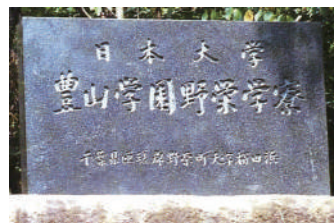 日本大学
豊山学園野栄学寮
千葉県匝瑳郡野栄町大字栢田浜